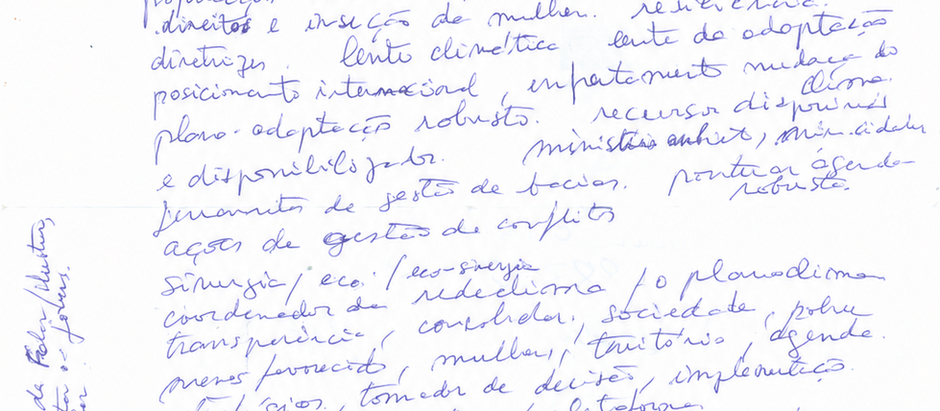 direitos e inserção da mulher. resiliência.
diretrizes. lente climática lente da adaptação
posicionamento internacional, enfrentamento mudança do clima.
plano-adaptação robusto. recursos disponíveis
e disponibilizados. ministério ambiet, min. cidades
ferramentas de gestão de bacias. pontuar agenda robusta.
ações de gestão de conflitos
sinergia/eco./eco-sinergia
coordenador da rede clima / o plano clima
transparência, consolidar, sociedade, pobre
menos favorecido, mulher, território, agenda.
tomador de decisão, implementação.
plataforma